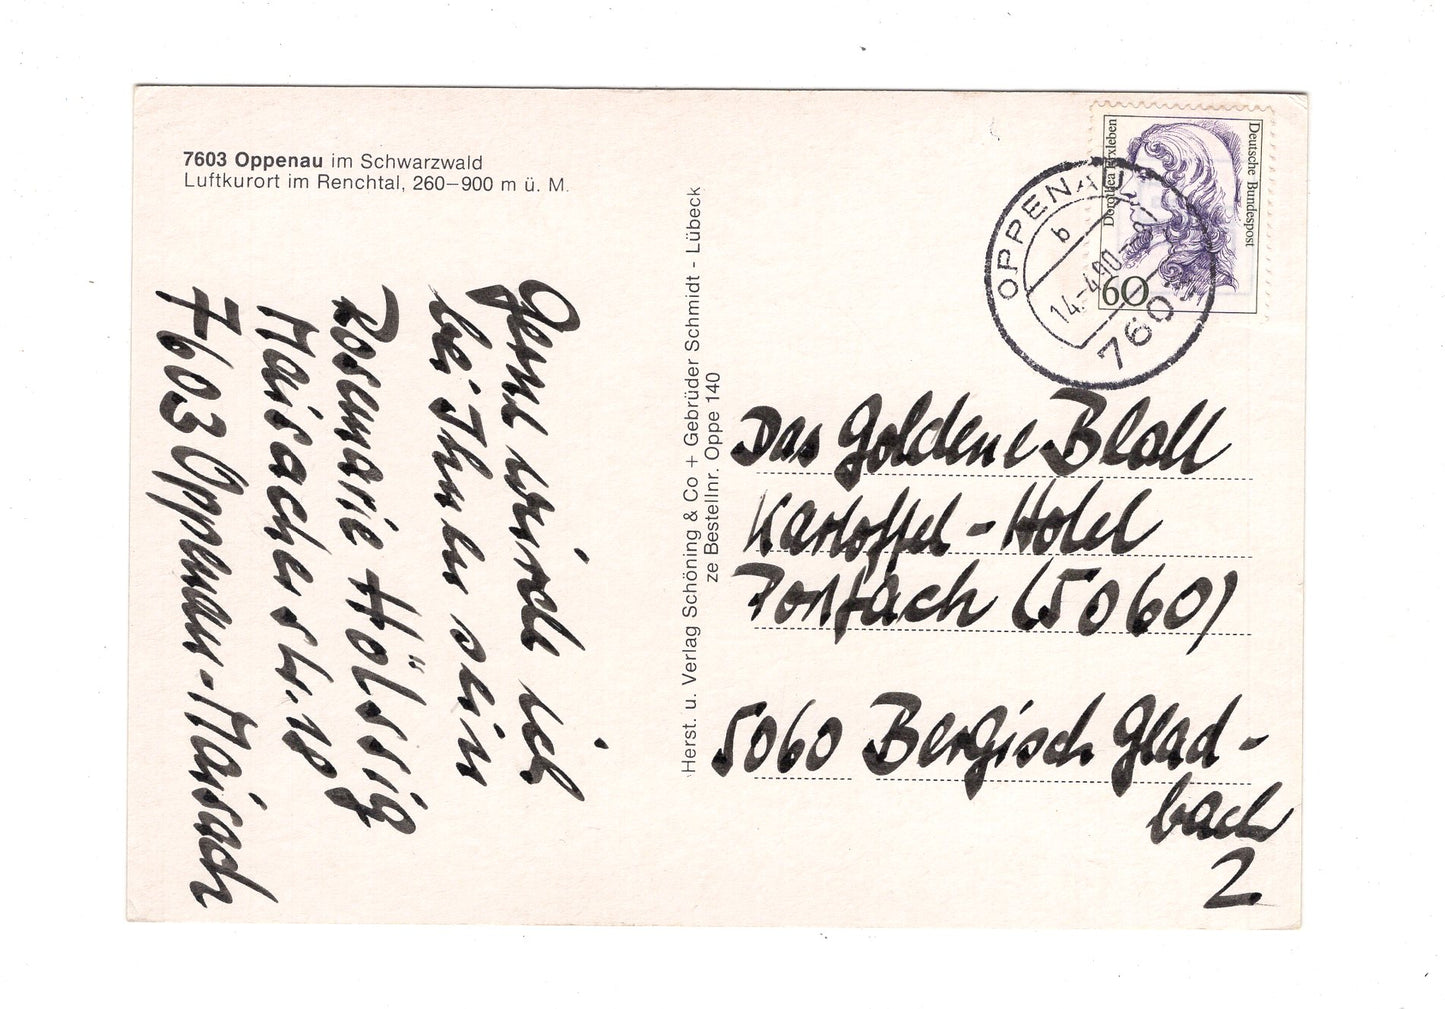 7603 Oppenau im Schwarzwald
Luftkurort im Renchtal, 260–900 m ü. M.
Gerne würde ich
bei Ihnen sein
Rosemarie Hölssig
Maisachestr. 10
7603 Oppenau-Maisach
Herst. u. Verlag Schöning & Co + Gebrüder Schmidt - Lübeck
ze Bestellnr. Oppe 140
Deutsche Bundespost
Dorothea Erxleben
60
OPPENAU
b
14.-4.90
7603
Das Goldene Blatt
Kartoffel-Hotel
Postfach (5060)
5060 Bergisch Glad-
bach
2